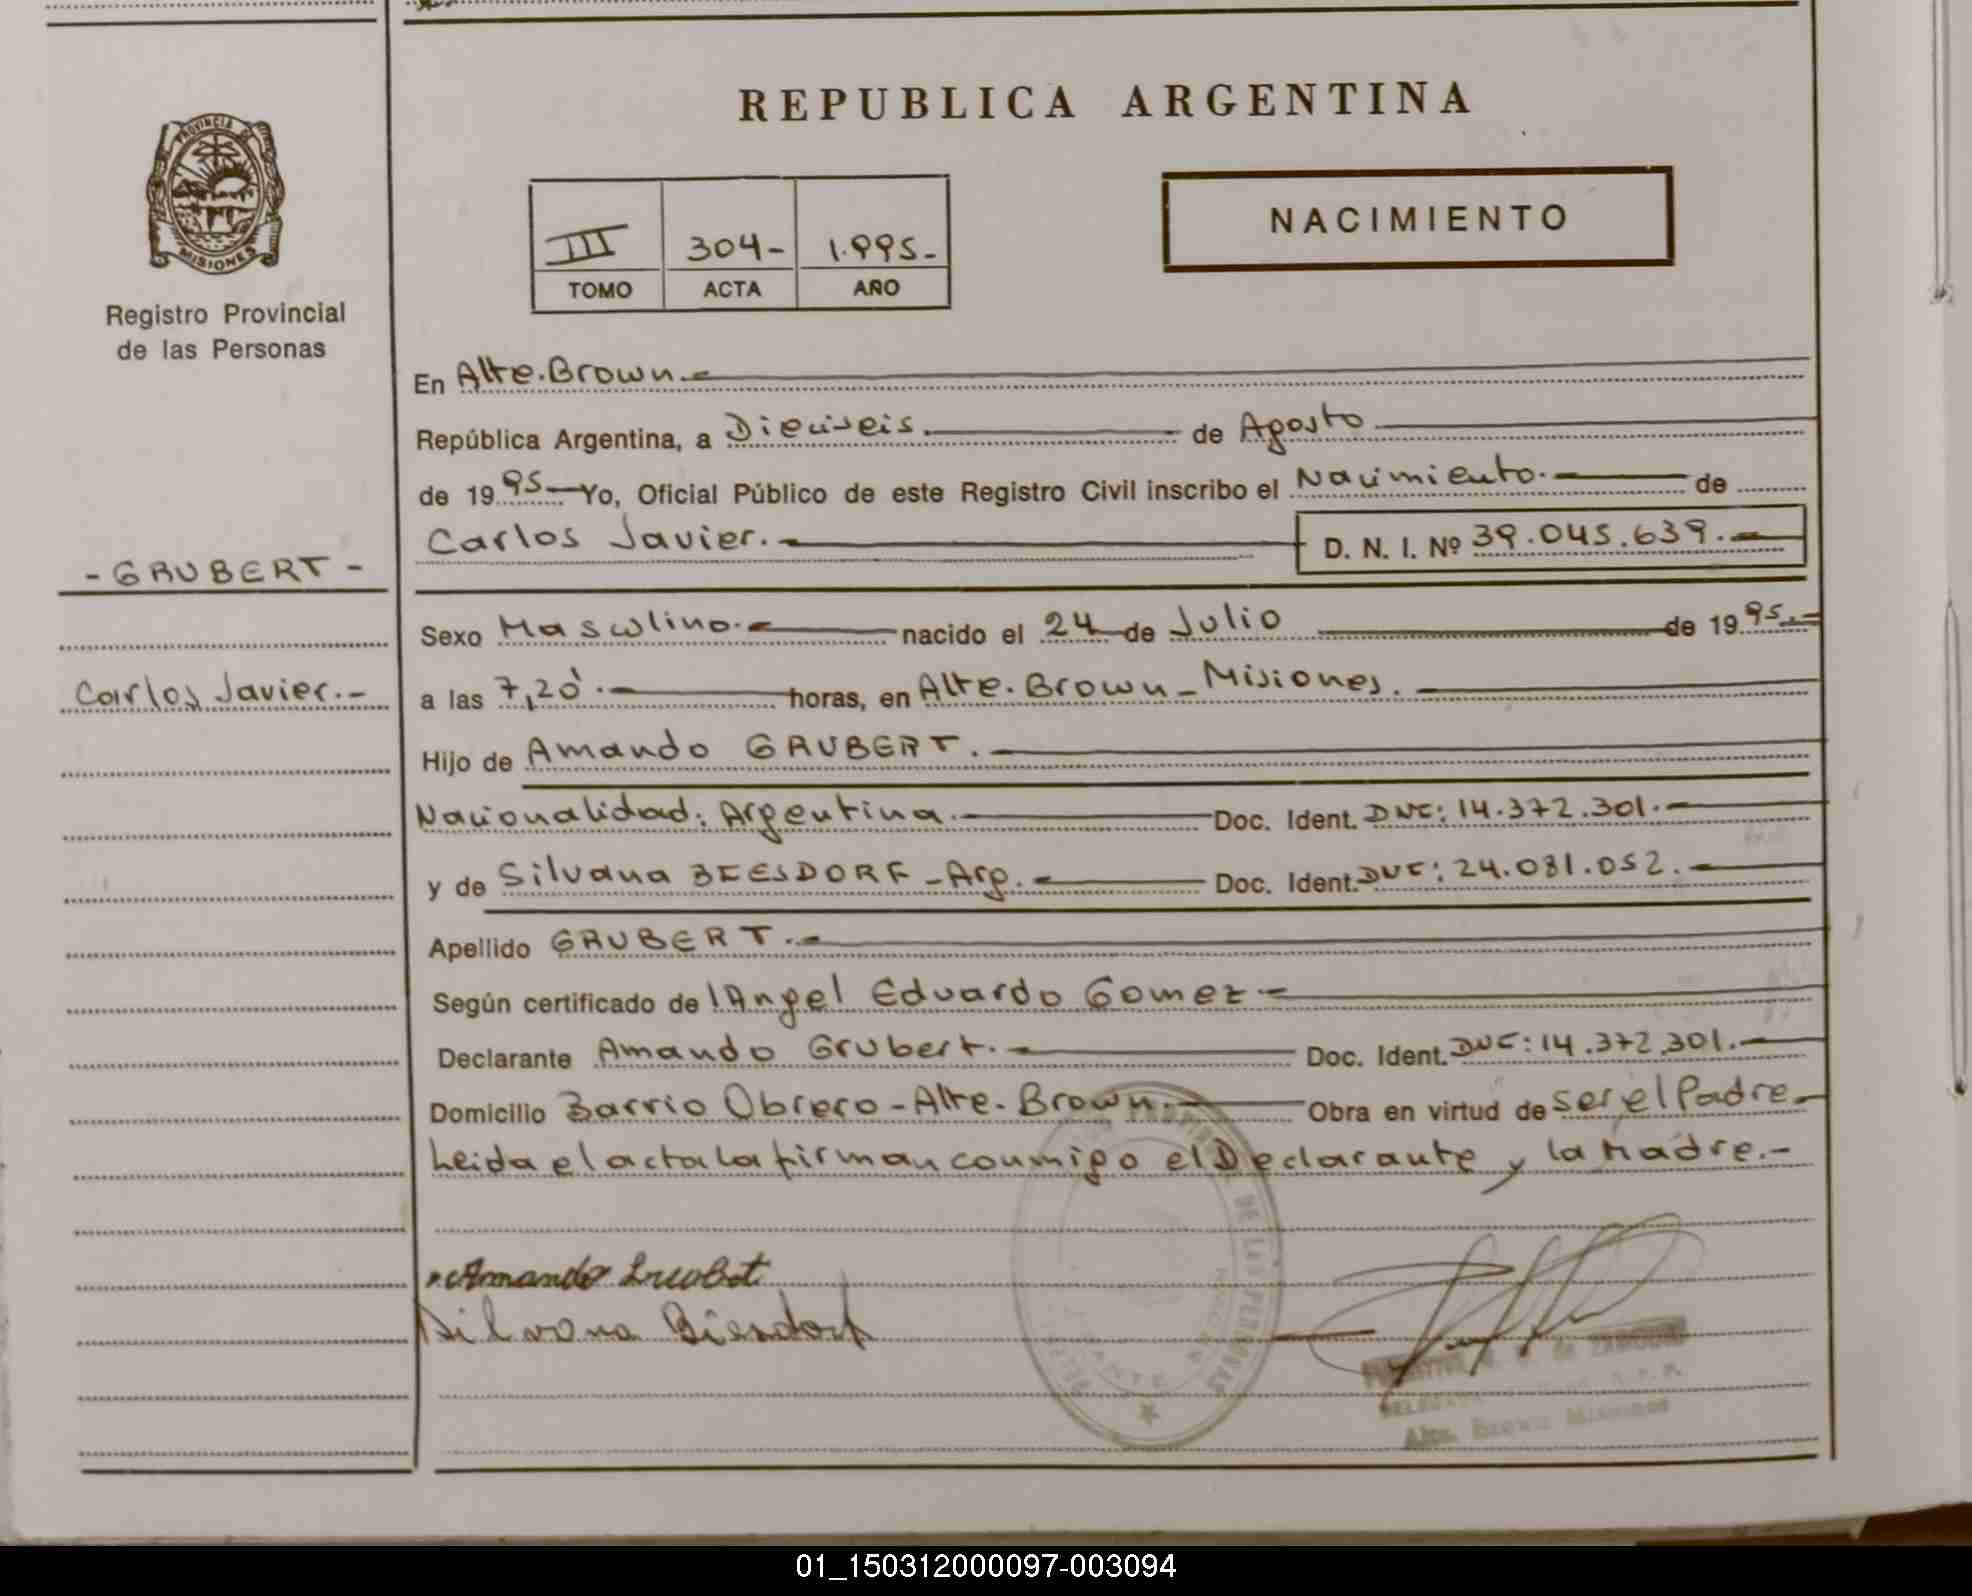 REPUBLICA ARGENTINA
PROVINCIA DE
MISIONES
Registro Provincial
de las Personas
III 304- 1.995-
TOMO ACTA AÑO
NACIMIENTO
En Alte. Brown.-
República Argentina, a Dieciseis. de Agosto
de 1995 Yo, Oficial Público de este Registro Civil inscribo el Nacimiento. de
Carlos Javier. D. N. I. Nº 39.045.639.-
- GRUBERT -
Sexo Masculino.- nacido el 24 de Julio de 1995.-
Carlos Javier.-
a las 7,20'.- horas, en Alte. Brown - Misiones.
Hijo de Amando GRUBERT.
Nacionalidad: Argentina. Doc. Ident. DNI: 14.372.301.-
y de Silvana BIESDORF - Arg. Doc. Ident. DNI: 24.081.052.-
Apellido GRUBERT.-
Según certificado de Angel Eduardo Gomez-
Declarante Amando Grubert. Doc. Ident. DNI: 14.372.301.-
Domicilio Barrio Obrero - Alte. Brown. Obra en virtud de ser el Padre-
Leida el acta la firman conmigo el Declarante y la Madre.-
Amando Grubert
Silvana Biesdorf
DE LAS PERSONAS
de ZAMUDIO
Alte. Brown Misiones
01_150312000097-003094